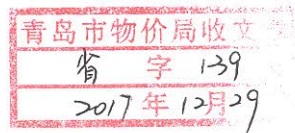 青岛市物价局收文
省 字 139
2017年12月29